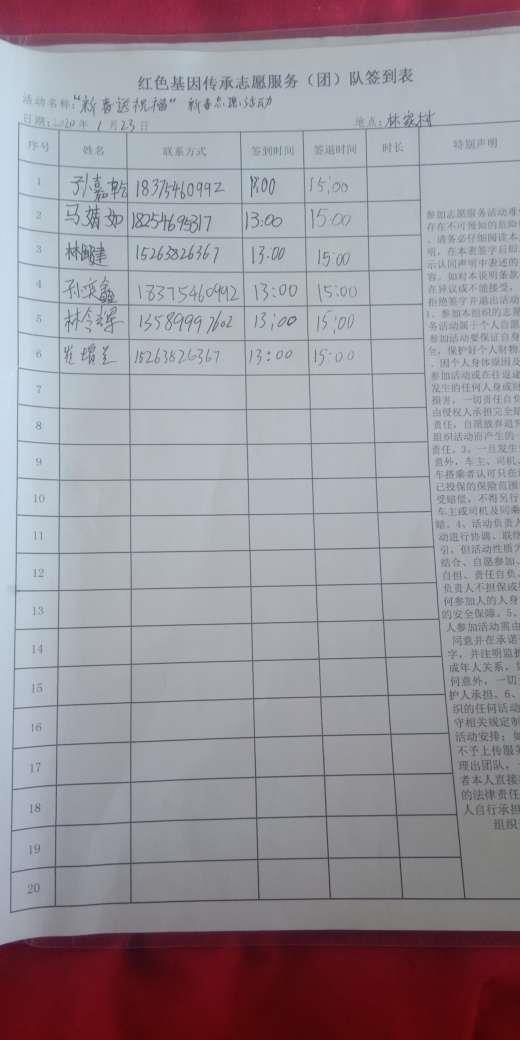 红色基因传承志愿服务（团）队签到表
活动名称：“新春送祝福” 新春志愿活动
日期：2020年1月23日 地点：林家村
序号 姓名 联系方式 签到时间 签退时间 时长 特别声明
1 孙嘉乾 18375460992 13:00 15:00
2 马茹如 18254695317 13:00 15:00
3 林建 15263826367 13:00 15:00
4 孙鑫 18375460992 13:00 15:00
5 林令 13589997602 13:00 15:00
6 15263826367 13:00 15:00
7
8
9
10
11
12
13
14
15
16
17
18
19
20
参加志愿服务活动难
存在不可预知的危险
，请务必仔细阅读本
明，在本表签字后即
示认同声明中表述的
容。如对本说明条款
在异议或不能接受，
拒绝签字并退出活动
1、参加本组织的志愿
务活动属于个人自愿
参加活动要保证自身
全，保护好个人财物
，因个人身体原因及
参加活动或在往返途
发生的任何人身或财
损害，一切责任自负
由侵权人承担完全
责任，自愿放弃追究
组织活动而产生的一
责任。3、一旦发生
意外，车主、司机、
车搭乘者认可只在
已投保的保险范围
受赔偿，不得另行
车主或司机及同乘
赔。4、活动负责人
动进行协调、联络
引，但活动性质为
结合、自愿参加、
自担、责任自负。
负责人不担保或
何参加人的人身
的安全保障。5、
人参加活动需由
同意并在承诺
字，并注明监护
成年人关系，
何意外，一切
护人承担。6、
织的任何活动
守相关规定制
活动安排；如
不予上传服务
理出团队，
者本人直接
的法律责任
人自行承担
组织